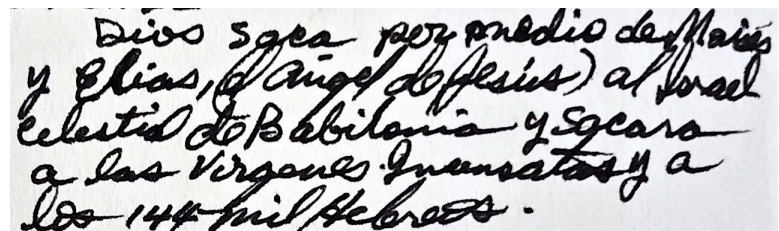 Dios saca por medio de Moisés
y Elias, (el Angel de Jesús) al Israel
celestial de Babilonia y sacara
a las Virgenes Insensatas y a
los 144 mil Hebreos.